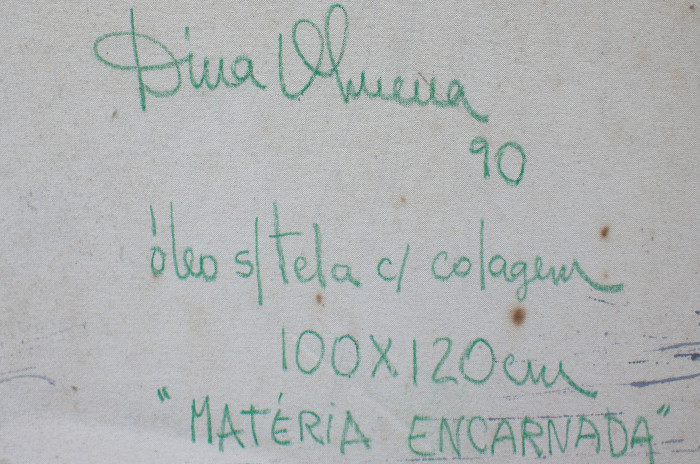 Dina Oliveira
90
óleo s/ tela c/ colagem
100X120cm
"MATÉRIA ENCARNADA"